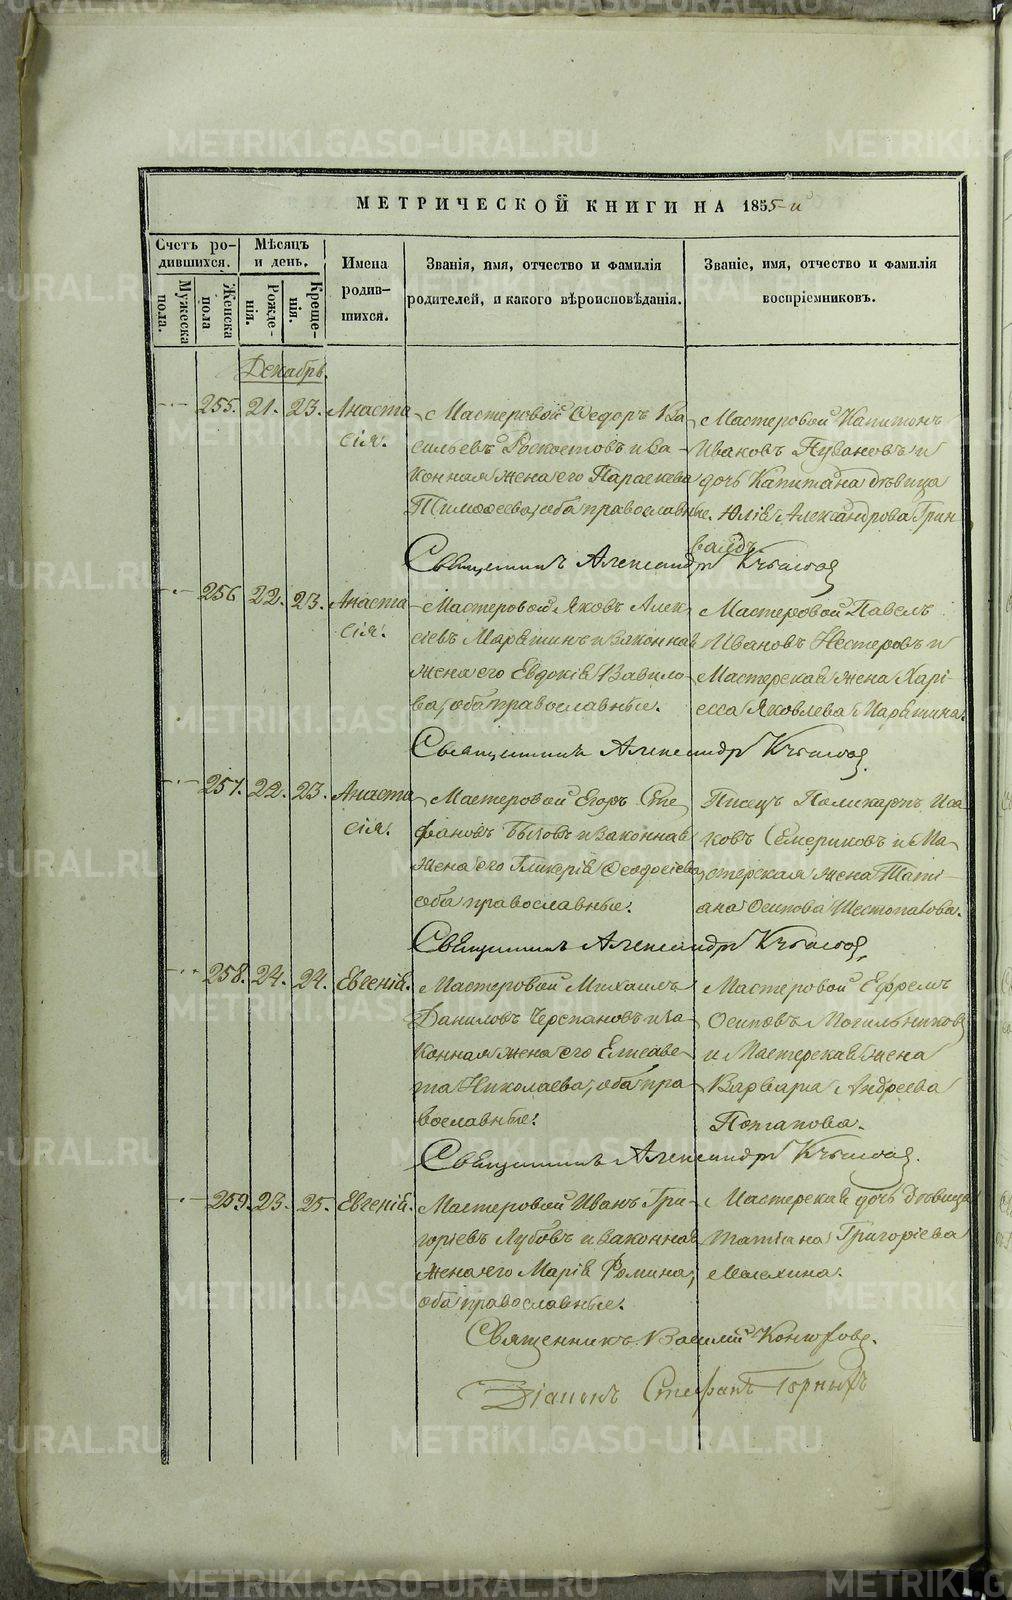 МЕТРИЧЕСКОЙ КНИГИ НА 1855-й
Счетъ ро-
дившихся.
Мѣсяцъ
и день.
Имена
родив-
шихся.
Званія, имя, отчество и фамилія
родителей, и какого вѣроисповѣданія.
Званіе, имя, отчество и фамилія
воспріемниковъ.
Мужеска
пола.
Женска
пола
Рожде-
нія.
Креще-
нія.
Декабрь.
255. 21. 23. Анаста
сія.
Мастеровой Ѳедоръ Ва
сильевъ и за-
конная жена его Параскева
Тимоѳеева, оба православные.
Мастеровой Капитонъ
Ивановъ и
дочь Капитана дѣвица
Юлія Александрова Грин
вальдъ.
Священникъ Александръ
256 22. 23. Анаста
сія.
Мастеровой Яковъ Алек
сіевъ и законная
жена его Евдокія Вавило
ва, оба православные.
Мастеровой Павелъ
Ивановъ Нестеровъ и
Мастерская жена Хари-
есса Яковлева
Священникъ Александръ
257. 22. 23. Анаста
сія.
Мастеровой Егоръ Сте
фановъ Быковъ и законная
жена его Гликерія Ѳеодосіева,
оба православные.
Писецъ Поликарпъ Иса
ковъ Семериковъ и Ма
стерская жена Тати-
ана Осипова Шестопалова.
Священникъ Александръ
258. 24. 24. Евгенія.
Мастеровой Михаилъ
Даниловъ Черепановъ и за-
конная жена его Елисаве-
та Николаева, оба пра-
вославные.
Мастеровой Ефремъ
Осиповъ Могильниковъ
и Мастерская жена
Варвара Андреева
Потапова.
Священникъ Александръ
259. 23. 25. Евгенія.
Мастеровой Иванъ Гри-
горіевъ Лубовъ и законная
жена его Марія Фомина,
оба православные.
Мастерская дочь дѣвица
Татіана Григоріева
Священникъ Василій Конюховъ.
Діаконъ Стефанъ Горныхъ
METRIKI.GASO-URAL.RU